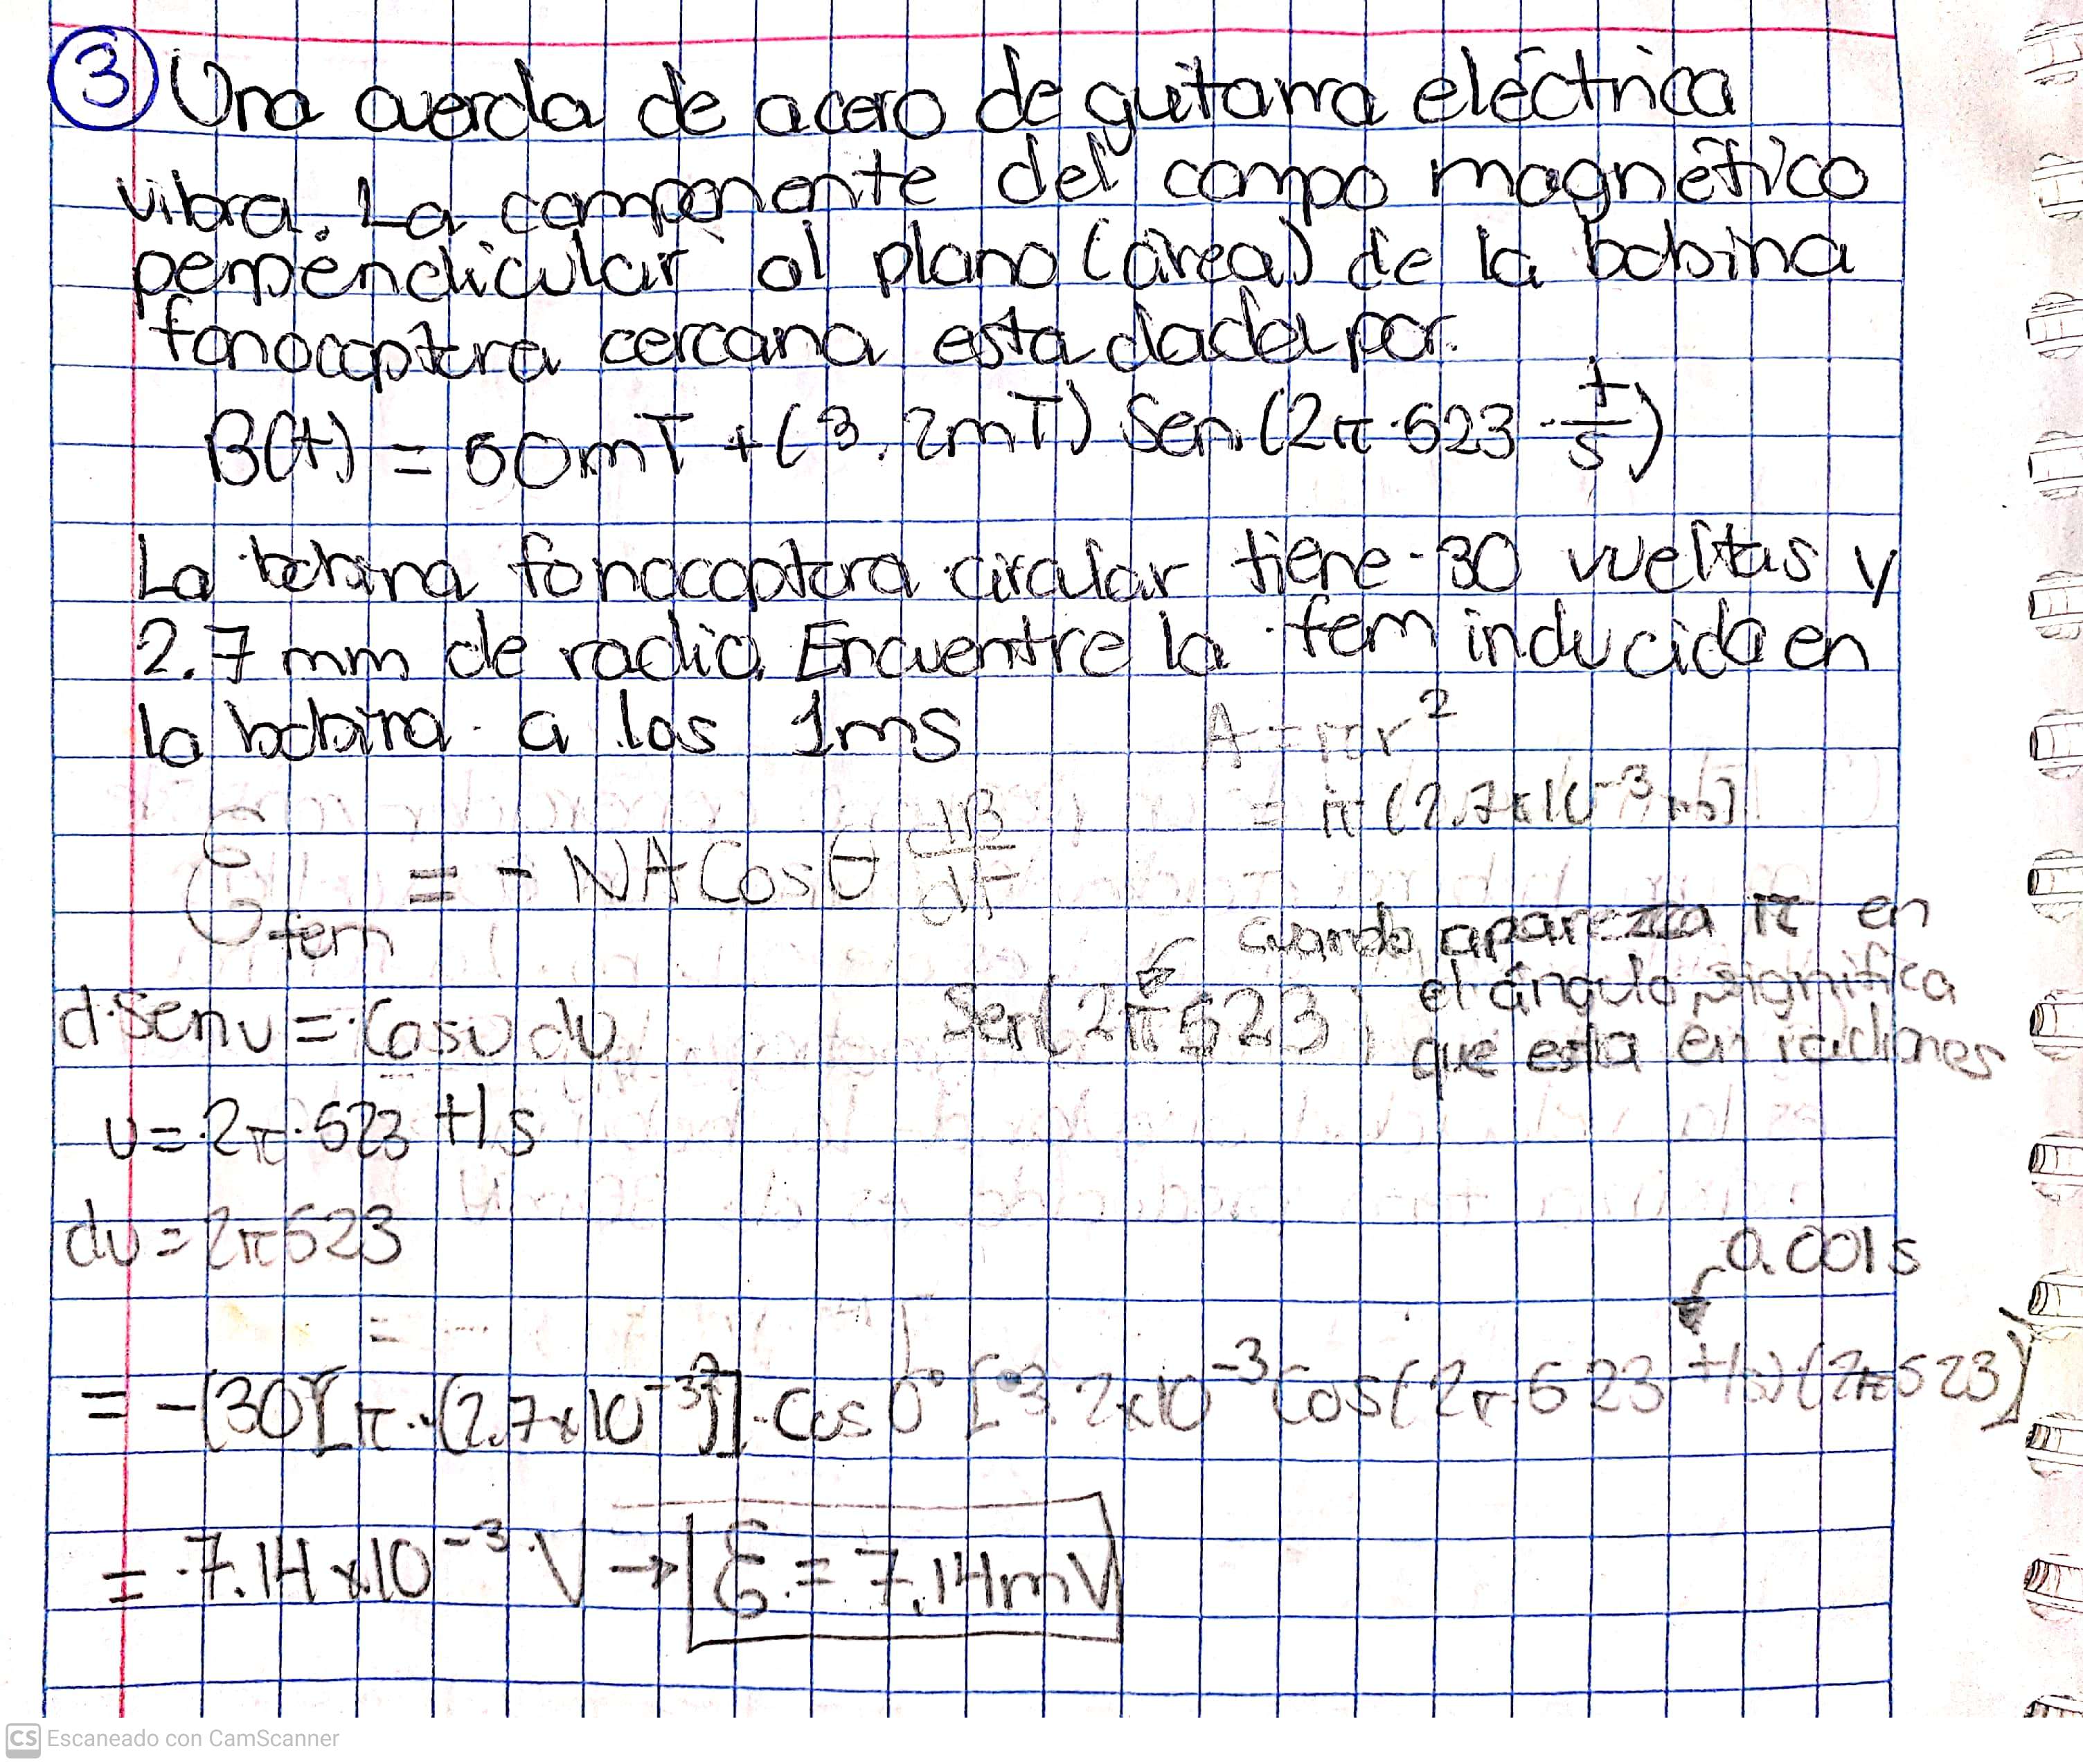 ③ Una cuerda de acero de guitarra eléctrica
vibra. La componente del campo magnético
perpendicular al plano (área) de la bobina
fonocaptora cercana esta dada por.
B(t) = 50mT + (3.2mT) Sen (2π·523 t/s)
La bobina fonocaptora circular tiene 30 vueltas y
2.7 mm de radio. Encuentre la fem inducida en
la bobina a los 1ms
A = πr²
= π (2.7x10⁻³ m)
Ɛfem = - NA Cos θ dB/dt
cuando aparezca π en
el ángulo, significa
que esta en radianes
Sen(2π523
d Sen u = Cos u du
u = 2π·523 t/s
du = 2π523
0.001s
= -(30)[π·(2.7x10⁻³)²]·Cos 0° [3.2x10⁻³ Cos(2π·523 t/s)(2π523)]
= 7.14 x 10⁻³ V → Ɛ = 7.14mV
CS Escaneado con CamScanner